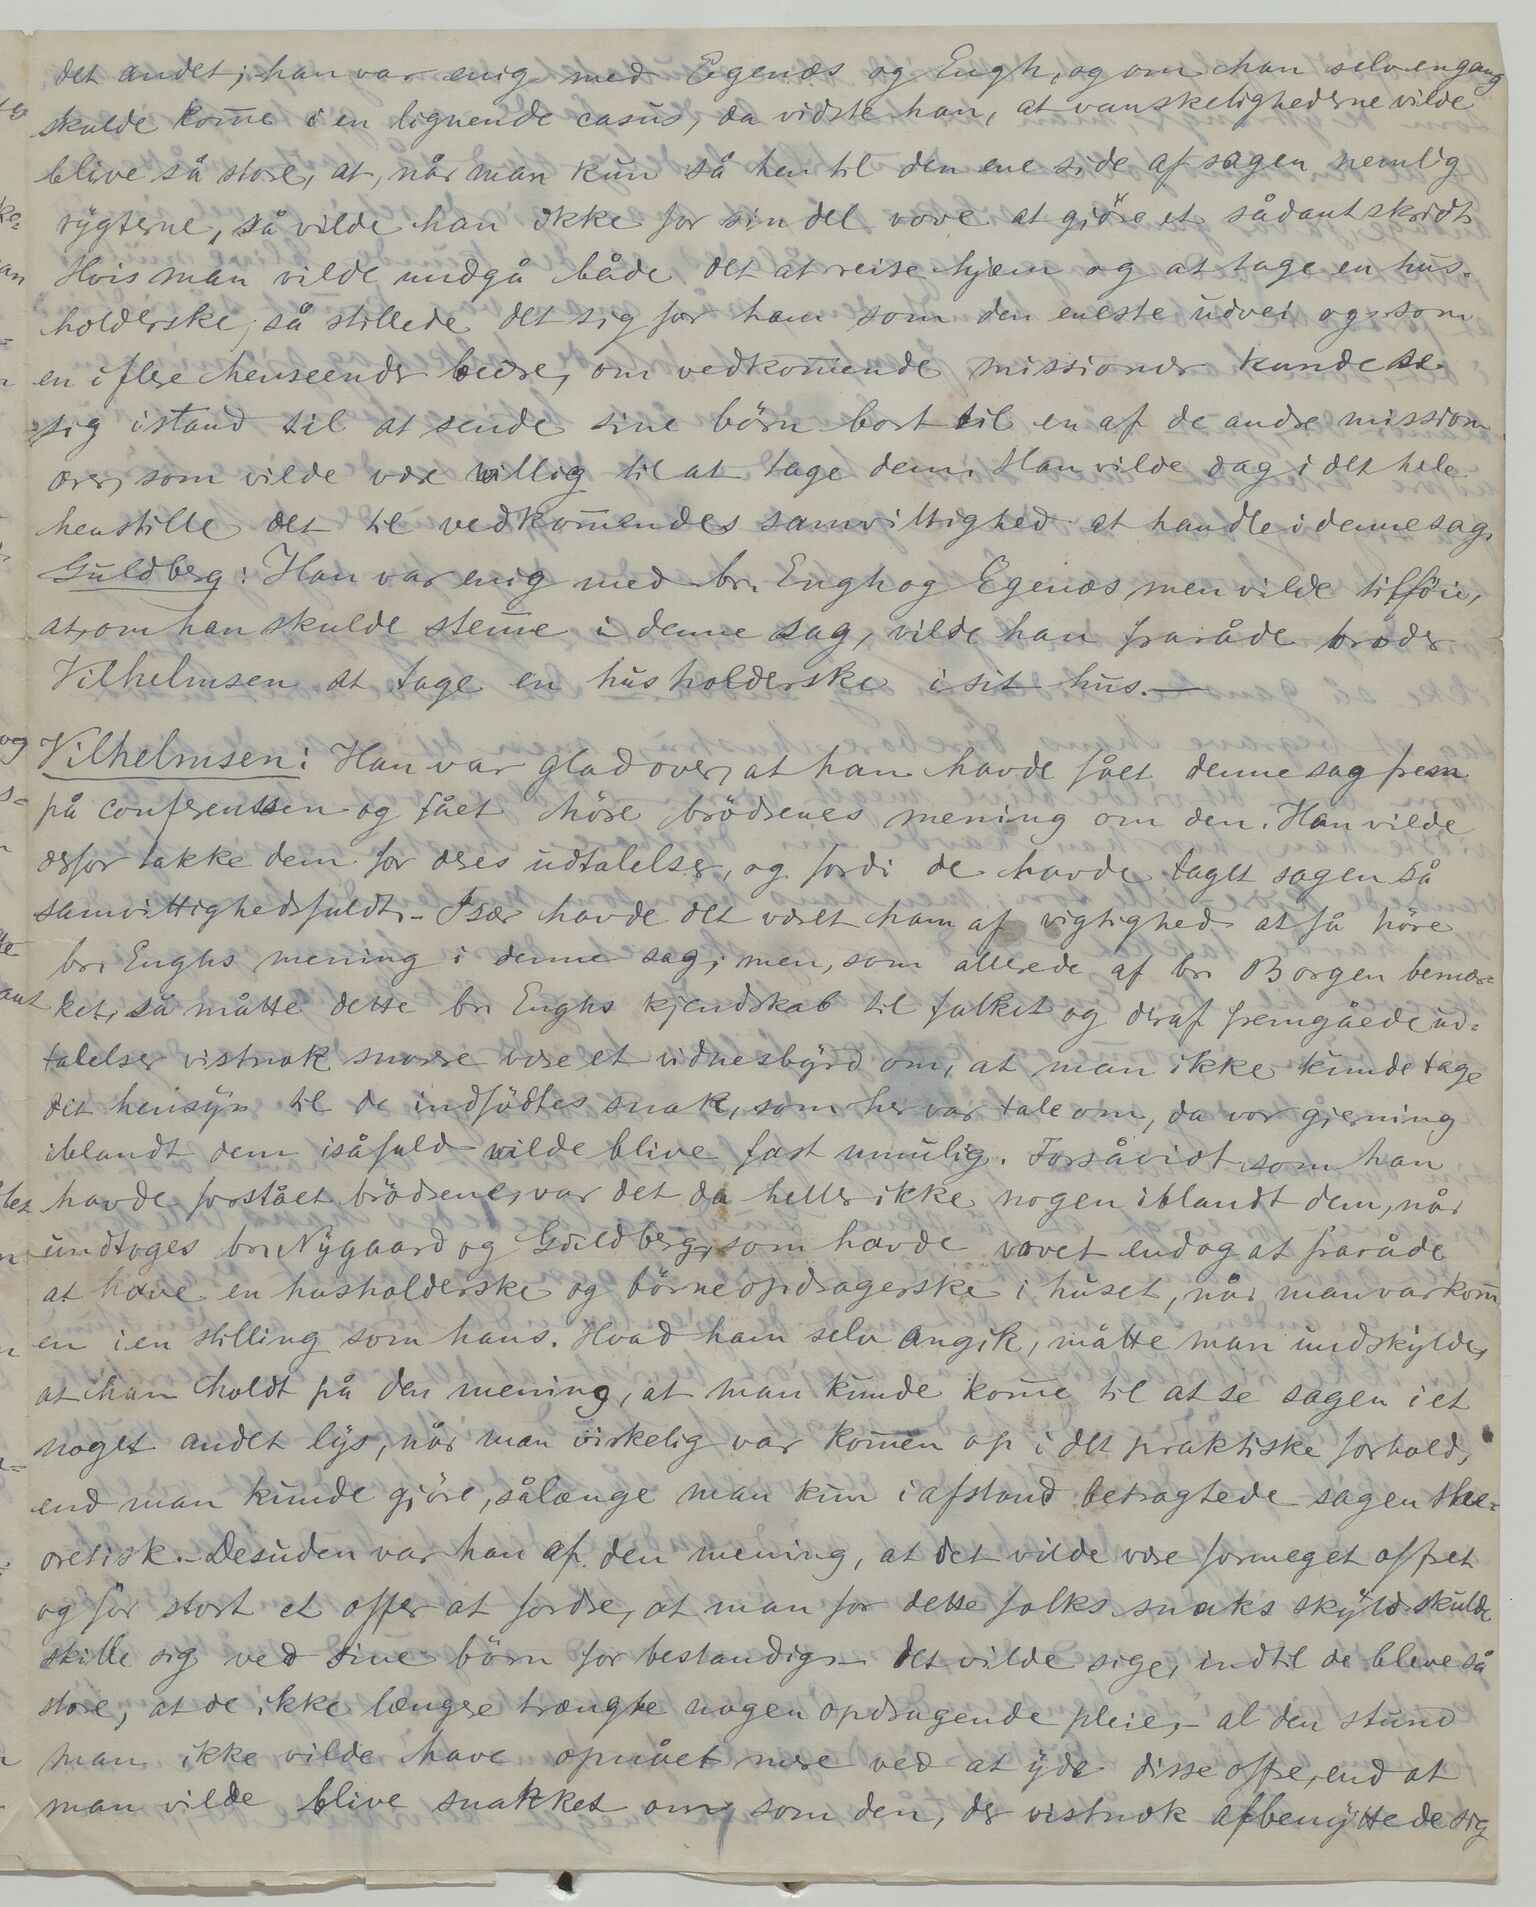 det andet; han var enig med Egenæs og Engh, og om han selv engang
skulde kom̄e i en lignende casus, da vidste han, at vanskelighederne vilde
blive så store, at, når man kun så hen til den ene side af sagen nemlig
rygterne, så vilde han ikke for sin del vove at gjöre et sådant skridt.
Hvis man vilde undgå både det at reise hjem og at tage en hus-
holderske, så stillede det sig for ham som den eneste udvei og som
en i flere henseender bedre, om vedkom̄ende missionær kunde se
sig istand til at sende sine börn bort til en af de andre mission
ærer, som vilde være villig til at tage dem. Han vilde dog i det hele
henstille det til vedkom̄endes samvittighed at handle i denne sag.
Guldberg: Han var enig med br. Engh og Egenæs, men vilde tilföie,
at, om han skulde stem̄e i denne sag, vilde han fraråde broder
Vilhelmsen at tage en husholderske i sit hus.—
Vilhelmsen: Han var glad over, at han havde fået denne sag frem
på conferentsen og fået höre brödrenes mening om den. Han vilde
derfor takke dem for deres udtalelser, og fordi de havde taget sagen så
samvittighedsfuldt.- Især havde det været ham af vigtighed at få höre
br. Enghs mening i denne sag; men, som allerede af br. Borgen bemær-
ket, så måtte dette br. Enghs kjendskab til folket og deraf fremgåede ud-
talelser vistnok snarere være et vidnesbyrd om, at man ikke kunde tage
det hensyn til de indfödtes snak, som her var tale om, da vor gjerning
iblandt dem isåfald vilde blive fast umulig. Forsåvidt som han
havde forstået brödrene, var det da heller ikke nogen iblandt dem, når
undtoges br. Nygaard og Guldberg, som havde vovet endog at fraråde
at have en husholderske og börneopdragerske i huset, når man var kom̄
en i en stilling som hans. Hvad ham selv angik, måtte man undskylde,
at han holdt på den mening, at man kunde kom̄e til at se sagen i et
noget andet lys, når man virkelig var kom̄en op i det praktiske forhold,
end man kunde gjöre, sålænge man kun i afstand betragtede sagen the-
oretisk.- Desuden var han af den mening, at det vilde være formeget offret
og for stort et offer at fordre, at man for dette folks snaks skyld skulde
skille sig ved sine börn for bestandig - det vilde sige, indtil de bleve så
store, at de ikke længere trængte nogen opdragende pleie, - al den stund
man ikke vilde have opnået mere ved at yde disse offre, end at
man vilde blive snakket om, som den, der vistnok afbenyttede sig